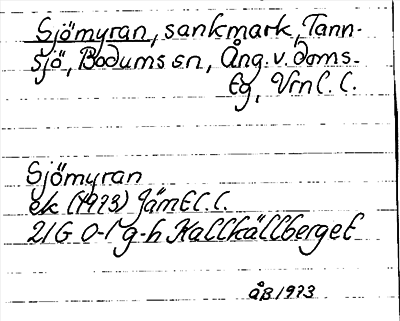 Sjömyran, sankmark, Tann-
sjö, Bodums sn, Ång. v. doms.
Eg, Vrnl. C.
Sjömyran
ek (1973) JämtC.C.
21G 0-1 g-h Kallkällberget
åB 1973